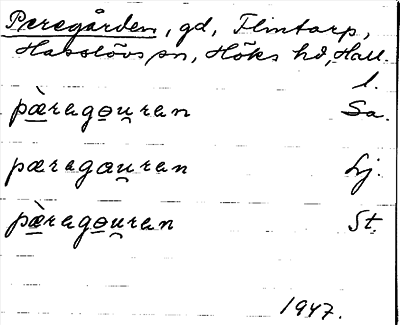 Peregården, gd, Flintarp,
Hasslövs sn, Höks hd, Hall.
l.
pæ̀ragɵu̯ran Sa.
pæragæu̯ran Lj.
pæ̀ragɵu̯ran St.
1947.